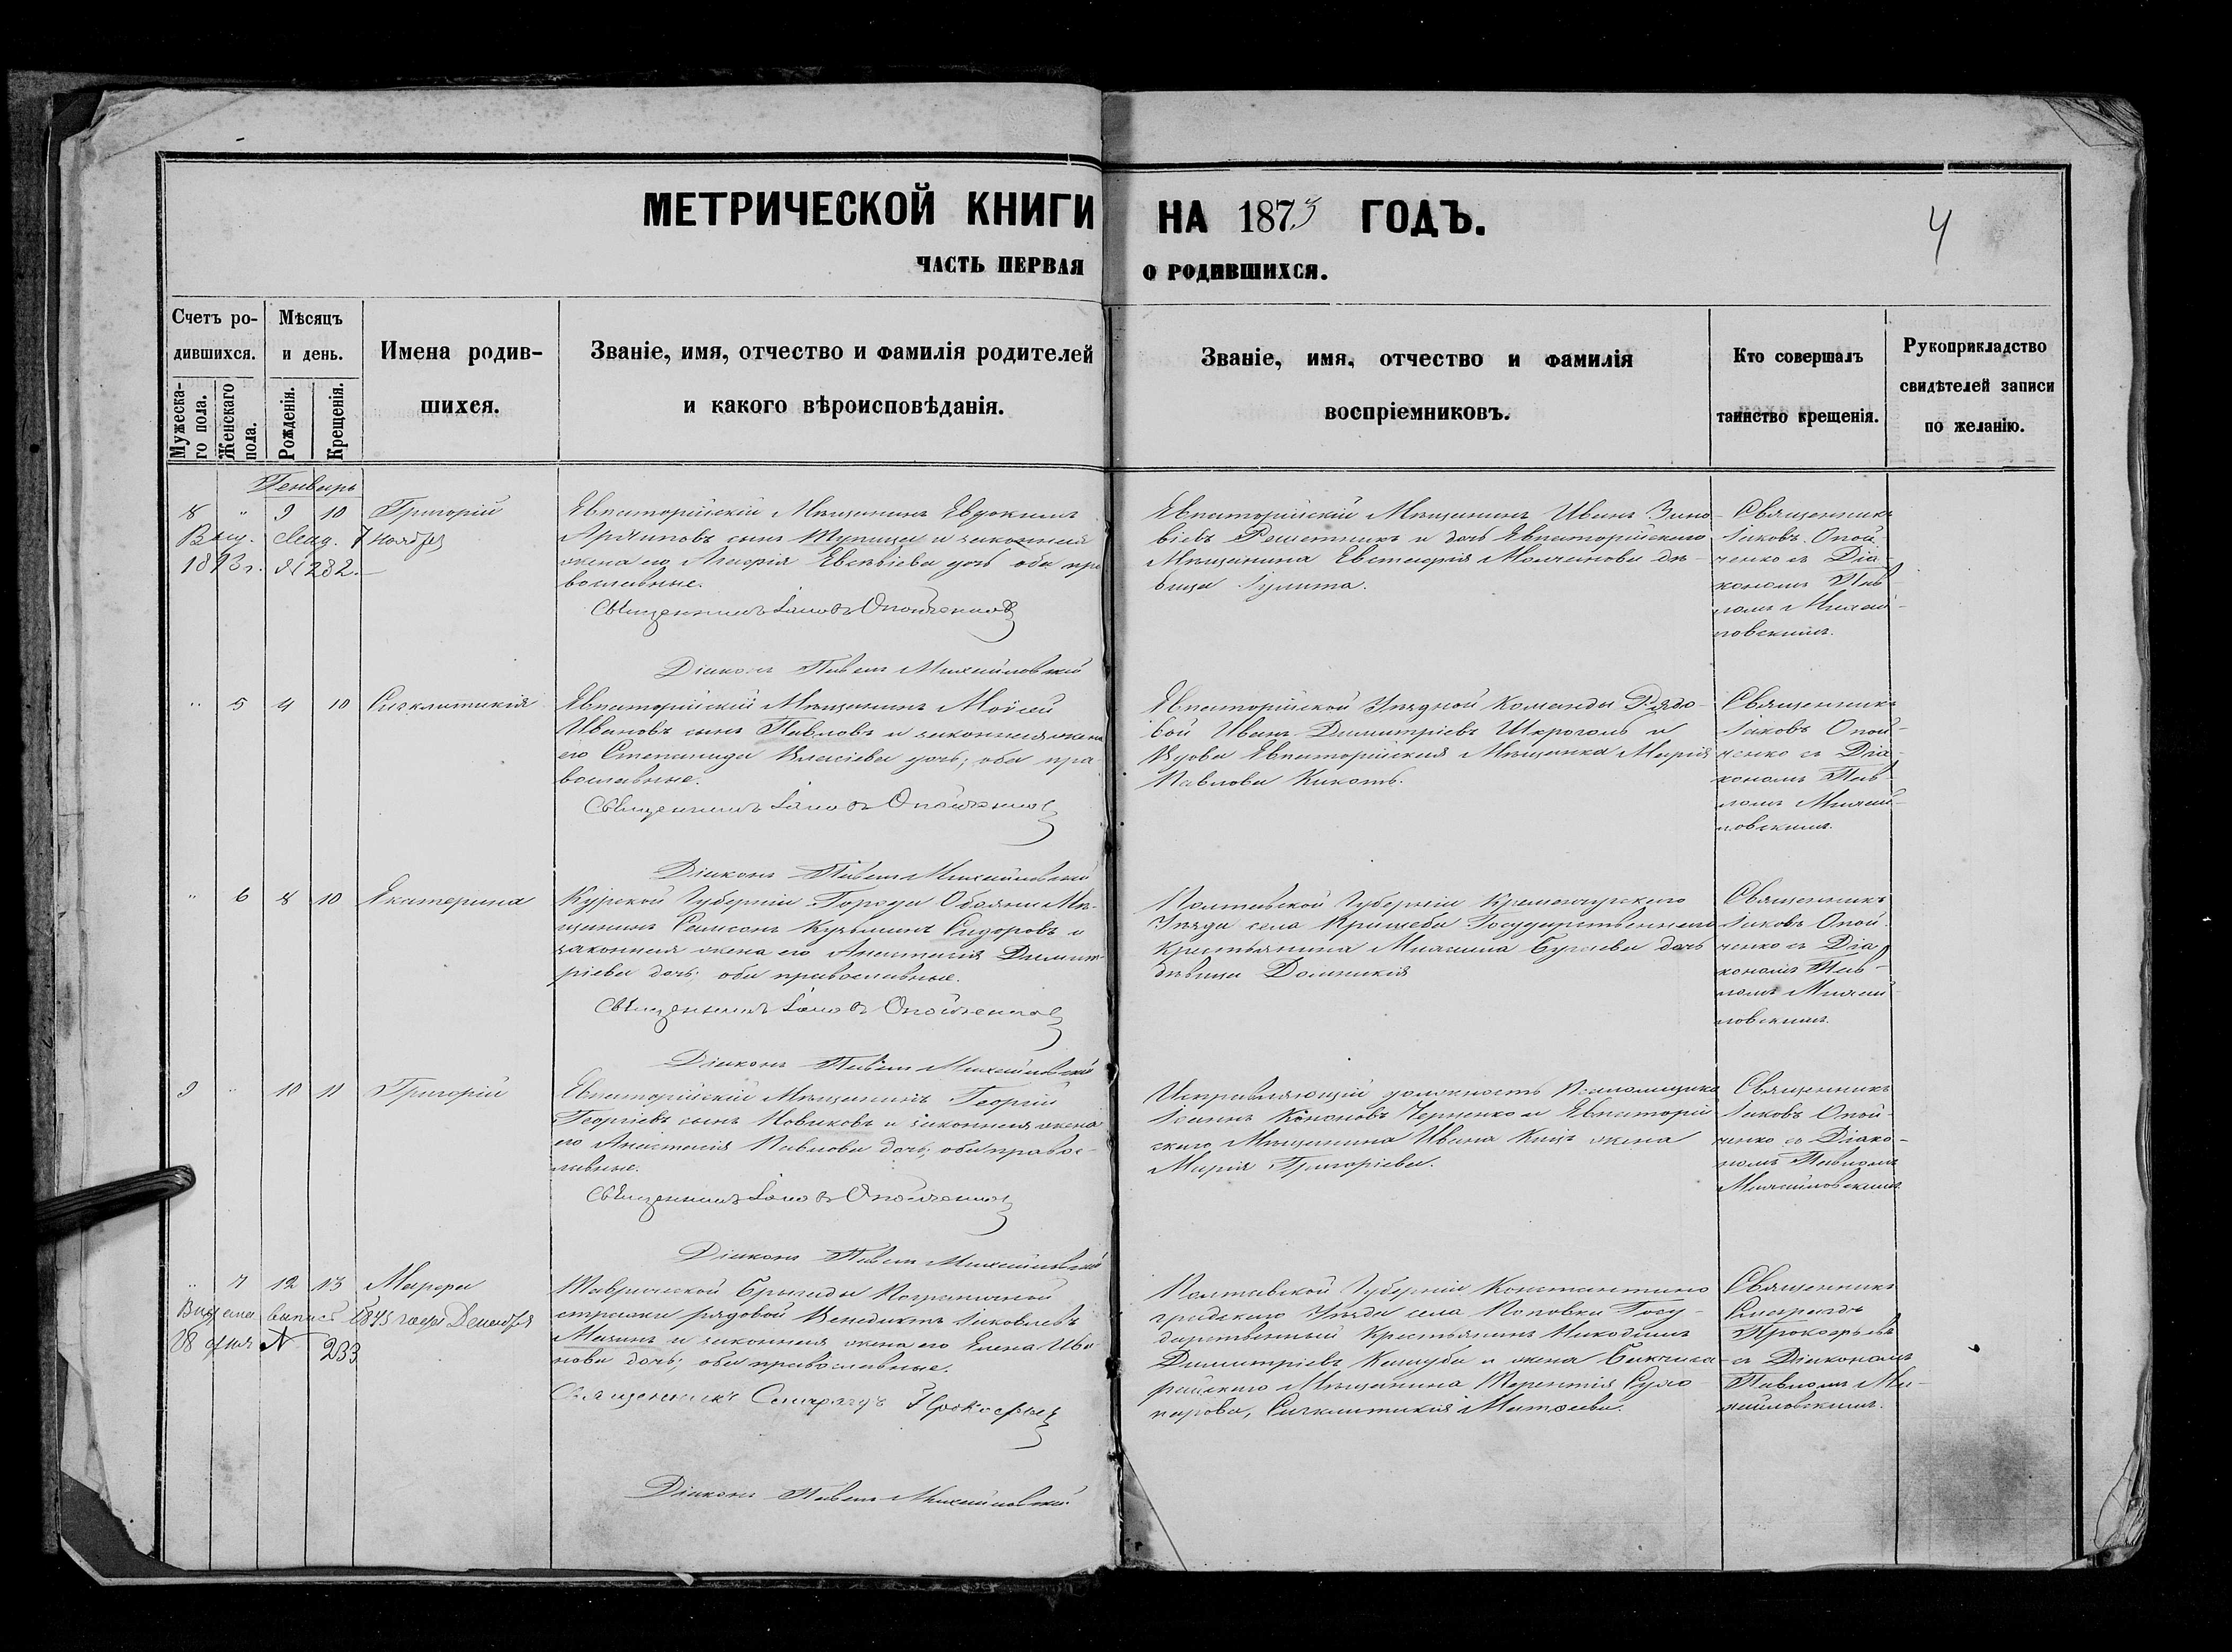 МЕТРИЧЕСКОЙ КНИГИ НА 1873 ГОДЪ.
4
ЧАСТЬ ПЕРВАЯ О РОДИВШИХСЯ.
Счетъ ро-
дившихся.
Мужеска-
го пола.
Женскаго
пола.
Мѣсяцъ
и день.
Рожденія.
Крещенія.
Имена родив-
шихся.
Званіе, имя, отчество и фамилія родителей
и какого вѣроисповѣданія.
Званіе, имя, отчество и фамилія
воспріемниковъ.
Кто совершалъ
таинство крещенія.
Рукоприкладство
свидѣтелей записи
по желанію.
Генварь
8 " 9 10 Григорій
7 Ноября
1893 г. № 282.
Евпаторійскій Мѣщанинъ Евдокимъ
сынъ и законная
жена его Евсѣвіева дочь оба пра
вославные.
Священникъ Іаковъ Опойченко
Діаконъ Павелъ Михайловскій
Евпаторійскій Мѣщанинъ Иванъ Зино-
віевъ Решетникъ и дочь Евпаторійскаго
Мѣщанина Евстафія Молчанова дѣ-
вица Іулита.
Священникъ
Іаковъ Опой-
ченко съ Діа-
кономъ Пав-
ломъ Михай-
ловскимъ.
" 5 4 10 Сигклитикія
Евпаторійскій Мѣщанинъ Моисей
Ивановъ сынъ Павловъ и законная жена
его Степанида Власіева дочь; оба пра
вославные.
Священникъ Іаковъ Опойченко
Діаконъ Павелъ Михайловскій
Евпаторійской Уѣздной Команды Рядо-
вой Иванъ Димитріевъ и
Вдова Евпаторійская Мѣщанка Марія
Павлова Кикоть.
Священникъ
Іаковъ Опой-
ченко съ Діа-
кономъ Пав-
ломъ Михай-
ловскимъ.
" 6 8 10 Екатерина
Курской Губерніи Города Обояни Мѣ-
щанинъ Самсонъ Кузьминъ Сидоровъ и
законная жена его Анастасія Димит-
ріева дочь; оба православные.
Священникъ Іаковъ Опойченко
Діаконъ Павелъ Михайловскій
Полтавской Губерніи Кременчугскаго
Уѣзда села Государственнаго
Крестьянина дочь
дѣвица Домникія
Священникъ
Іаковъ Опой-
ченко съ Діа
кономъ Пав-
ломъ Михай-
ловскимъ.
9 " 10 11 Григорій
Евпаторійскій Мѣщанинъ Георгій
Георгіевъ сынъ Новиковъ и законная жена
его Анастасія Павлова дочь; оба правос-
лавные.
Священникъ Іаковъ Опойченко
Діаконъ Павелъ Михайловскій
Исправляющій должность
Іоаннъ Кононовъ Черненко и Евпаторій
скаго Мѣщанина Ивана жена
Марія Григоріева.
Священникъ
Іаковъ Опой-
ченко съ Діако-
номъ Павломъ
Михайловскимъ
" 7 12 13 Марфа
Выдана выпись года Декабря
28 дня № 233
Таврической Бригады Пограничной
стражи рядовой Венедиктъ Іаковлевъ
и законная жена его Елена Ива
нова дочь; оба православные.
Священникъ Спиридонъ Прокофьевъ
Діаконъ Павелъ Михайловскій
Полтавской Губерніи Константино
градскаго Уѣзда села Поповки Госу-
дарственный Крестьянинъ Никодимъ
Димитріевъ Кашуба и жена Бакчиса-
райскаго Мѣщанина Терентія
Сигклитикія Матѳеева.
Священникъ
Прокофьевъ
съ Діакономъ
Павломъ Ми-
хайловскимъ.